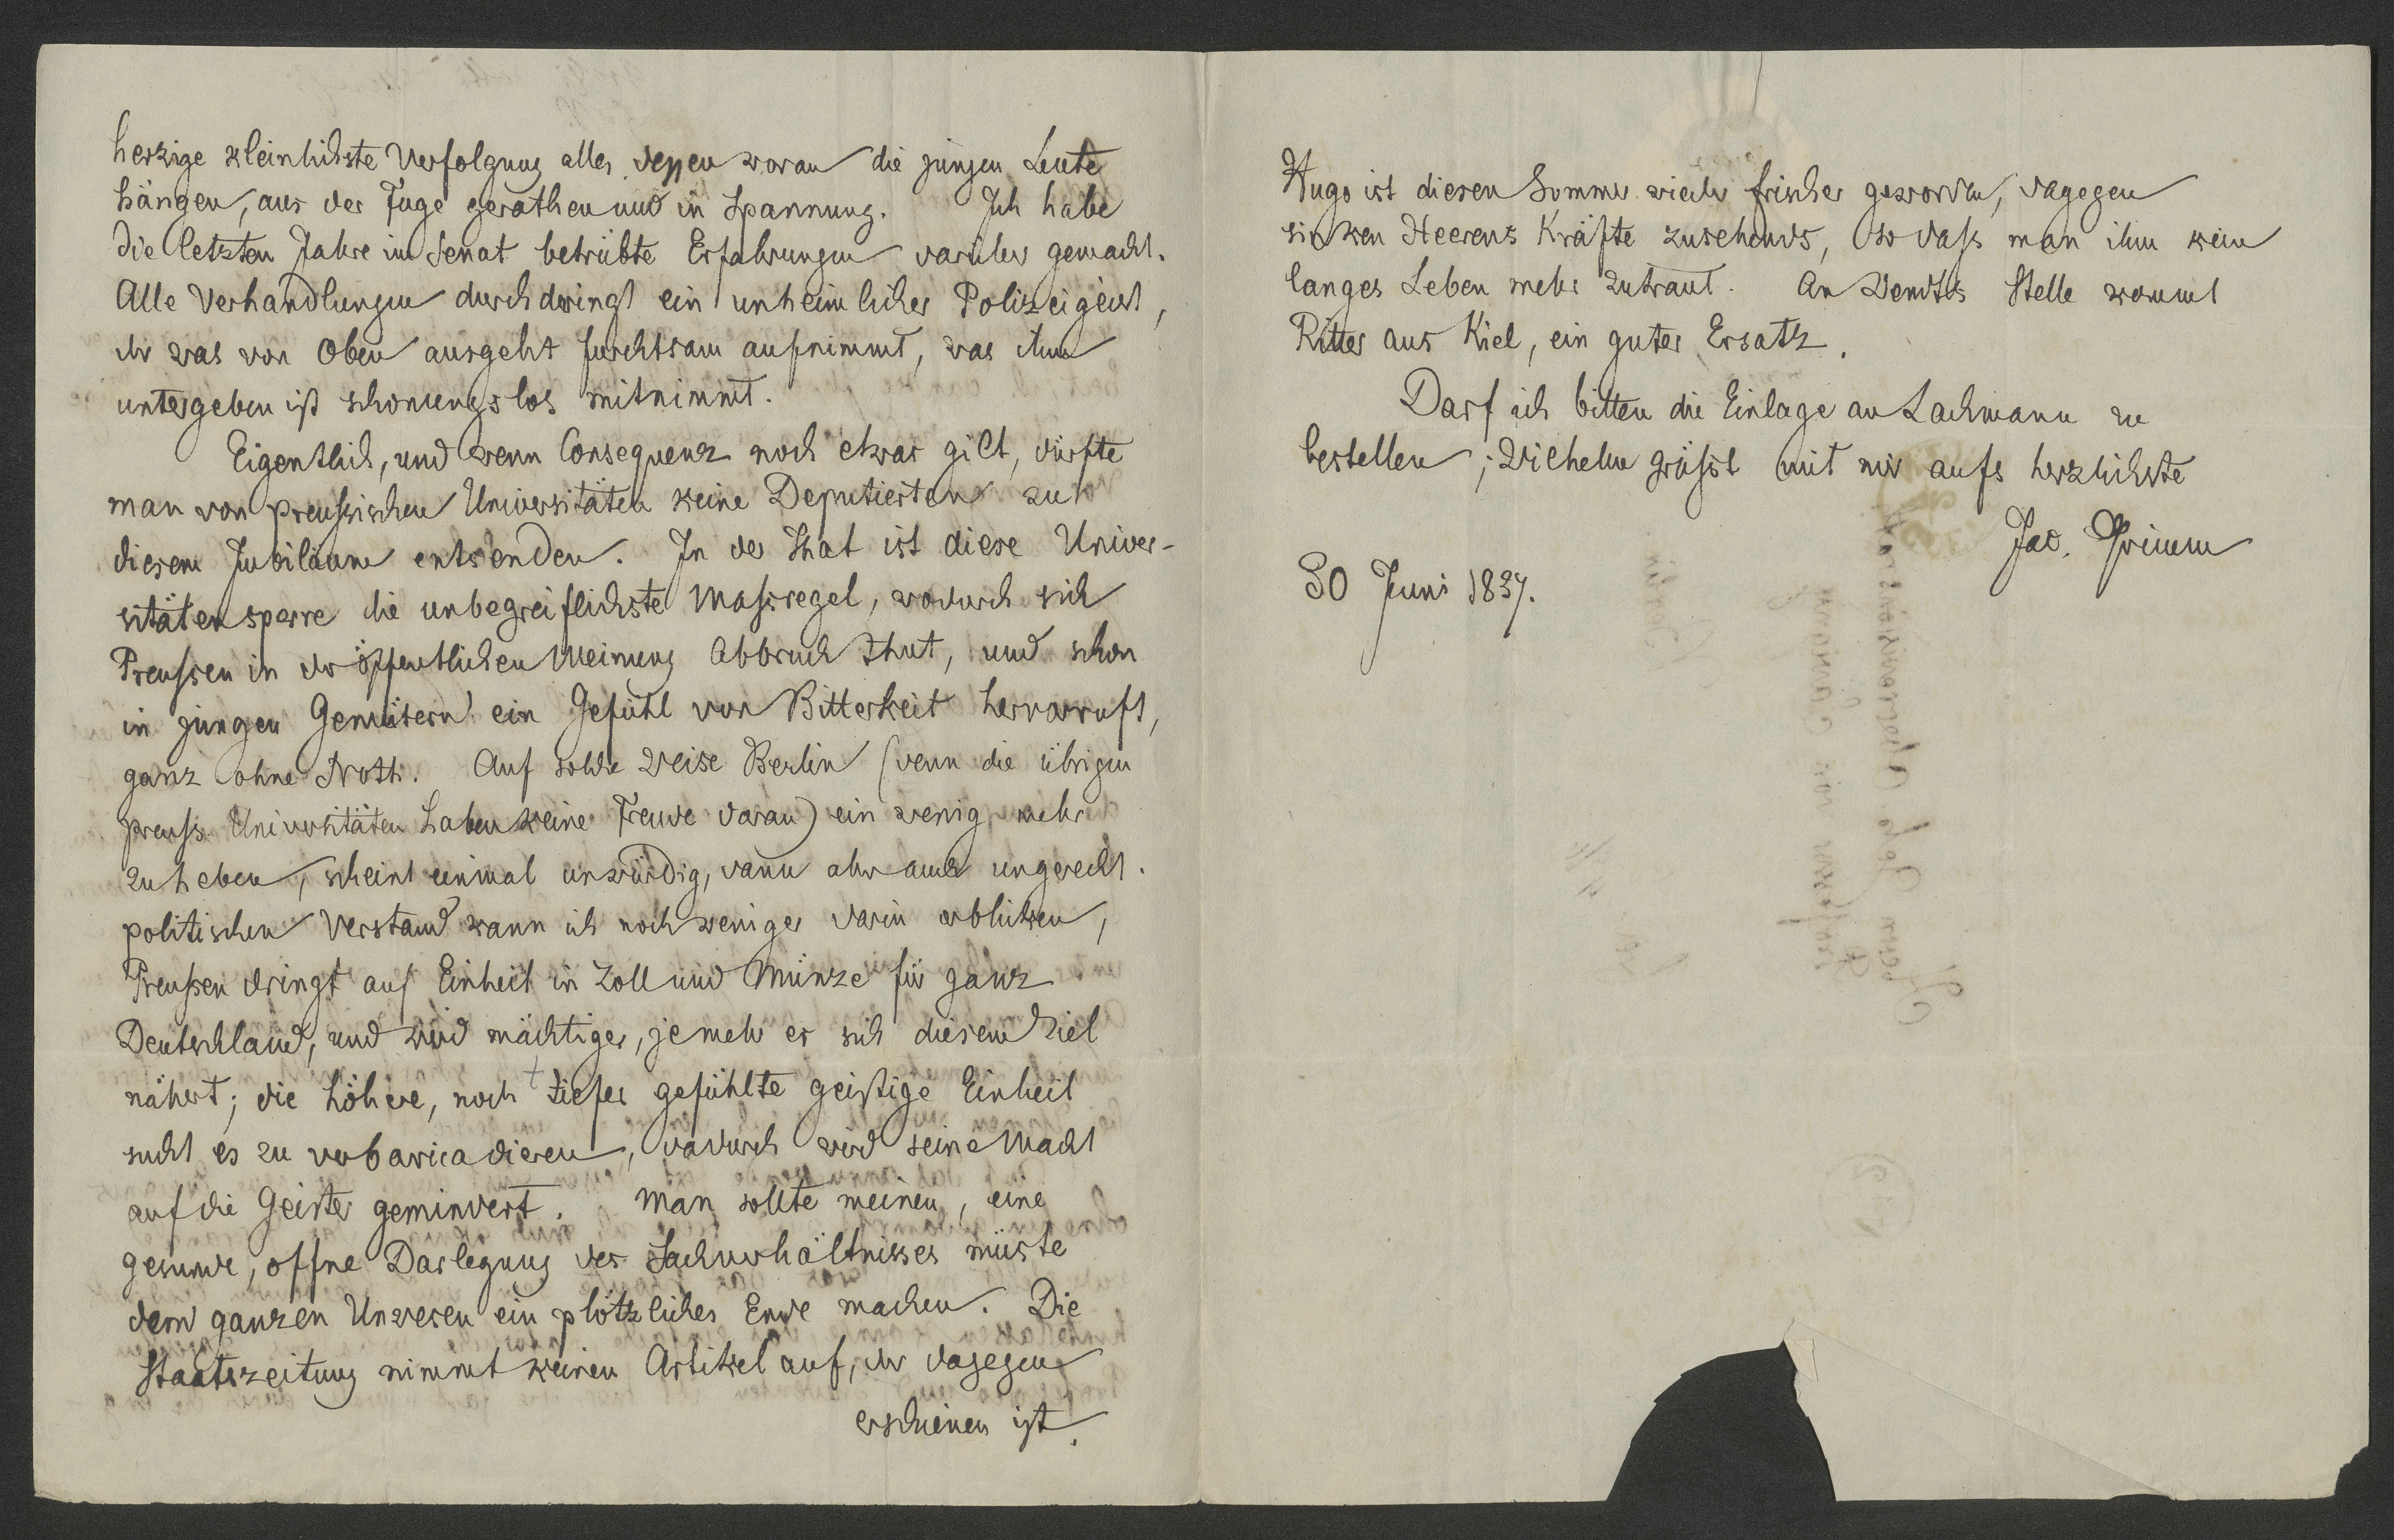 herzige kleinlichste Verfolgung alles dessen woran die jungen Leute
hängen, aus der Fuge gerathen und in Spannung. Ich habe
die letzten Jahre im Senat betrübte Erfahrungen darüber gemacht.
Alle Verhandlungen durchdringt ein unheimlicher Polizeigeist,
der was von Oben ausgeht furchtsam aufnimmt, was ihm
untergeben ist schonungslos mitnimmt.
Eigentlich, und wenn Consequenz noch etwas gilt, dürfte
man von preussischen Universitäten keine Deputierten zu
diesem Jubiläum entsenden. In der That ist diese Univer-
sitätensperre die unbegreiflichste Massregel, wodurch sich
Preussen in der öffentlichen Meinung Abbruch thut, und schon
in jungen Gemütern ein Gefühl von Bitterkeit hervorruft,
ganz ohne Noth. Auf solche Weise Berlin (denn die übrigen
preuss. Universitäten haben keine Freude daran) ein wenig mehr
zu heben, scheint einmal unwürdig, dann aber auch ungerecht.
politischen Verstand kann ich noch weniger darin erblicken,
Preussen dringt auf Einheit in Zoll und Münze für ganz
Deutschland, und wird mächtiger, je mehr es sich diesem Ziel
nähert; die höhere, noch tiefer gefühlte geistige Einheit
sucht es zu verbaricadieren, dadurch wird seine Macht
auf die Geister gemindert. Man sollte meinen, eine
gesunde, offne Darlegung des Sachverhältnisses müste
dem ganzen Unwesen ein plötzliches Ende machen. Die
Staatszeitung nimmt keinen Artikel auf, der dagegen
erschienen ist.
Hugo ist diesen Sommer wieder frischer geworden, dagegen
sinken Heerens Kräfte zusehends, so dass man ihm kein
langes Leben mehr zutraut. An Wendts Stelle kommt
Ritter aus Kiel, ein guter Ersatz.
Darf ich bitten die Einlage an Lachmann zu
bestellen; Wilhelm grüsst mit mir aufs herzlichste
Jac. Grimm
30 Juni 1837.